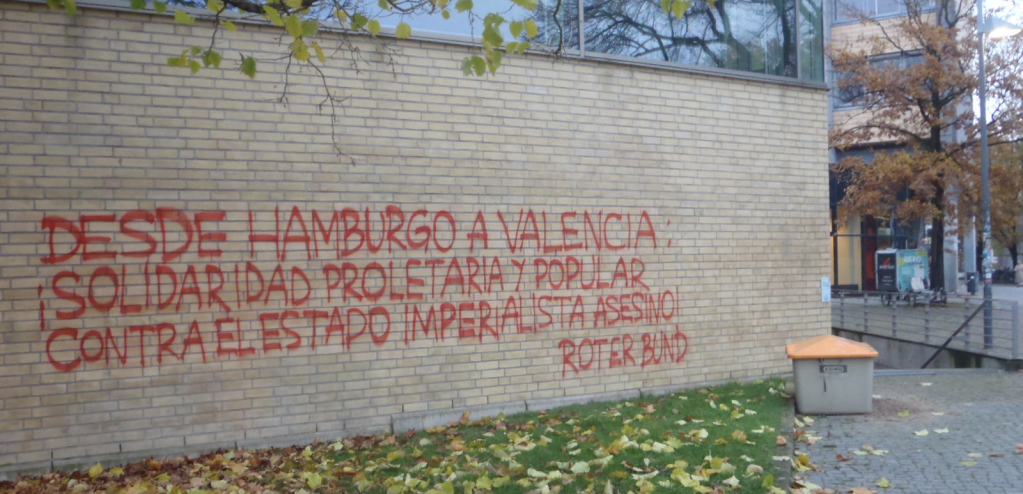 DESDE HAMBURGO A VALENCIA:
¡SOLIDARIDAD PROLETARIA Y POPULAR
CONTRA EL ESTADO IMPERIALISTA ASESINO!
ROTER BUND